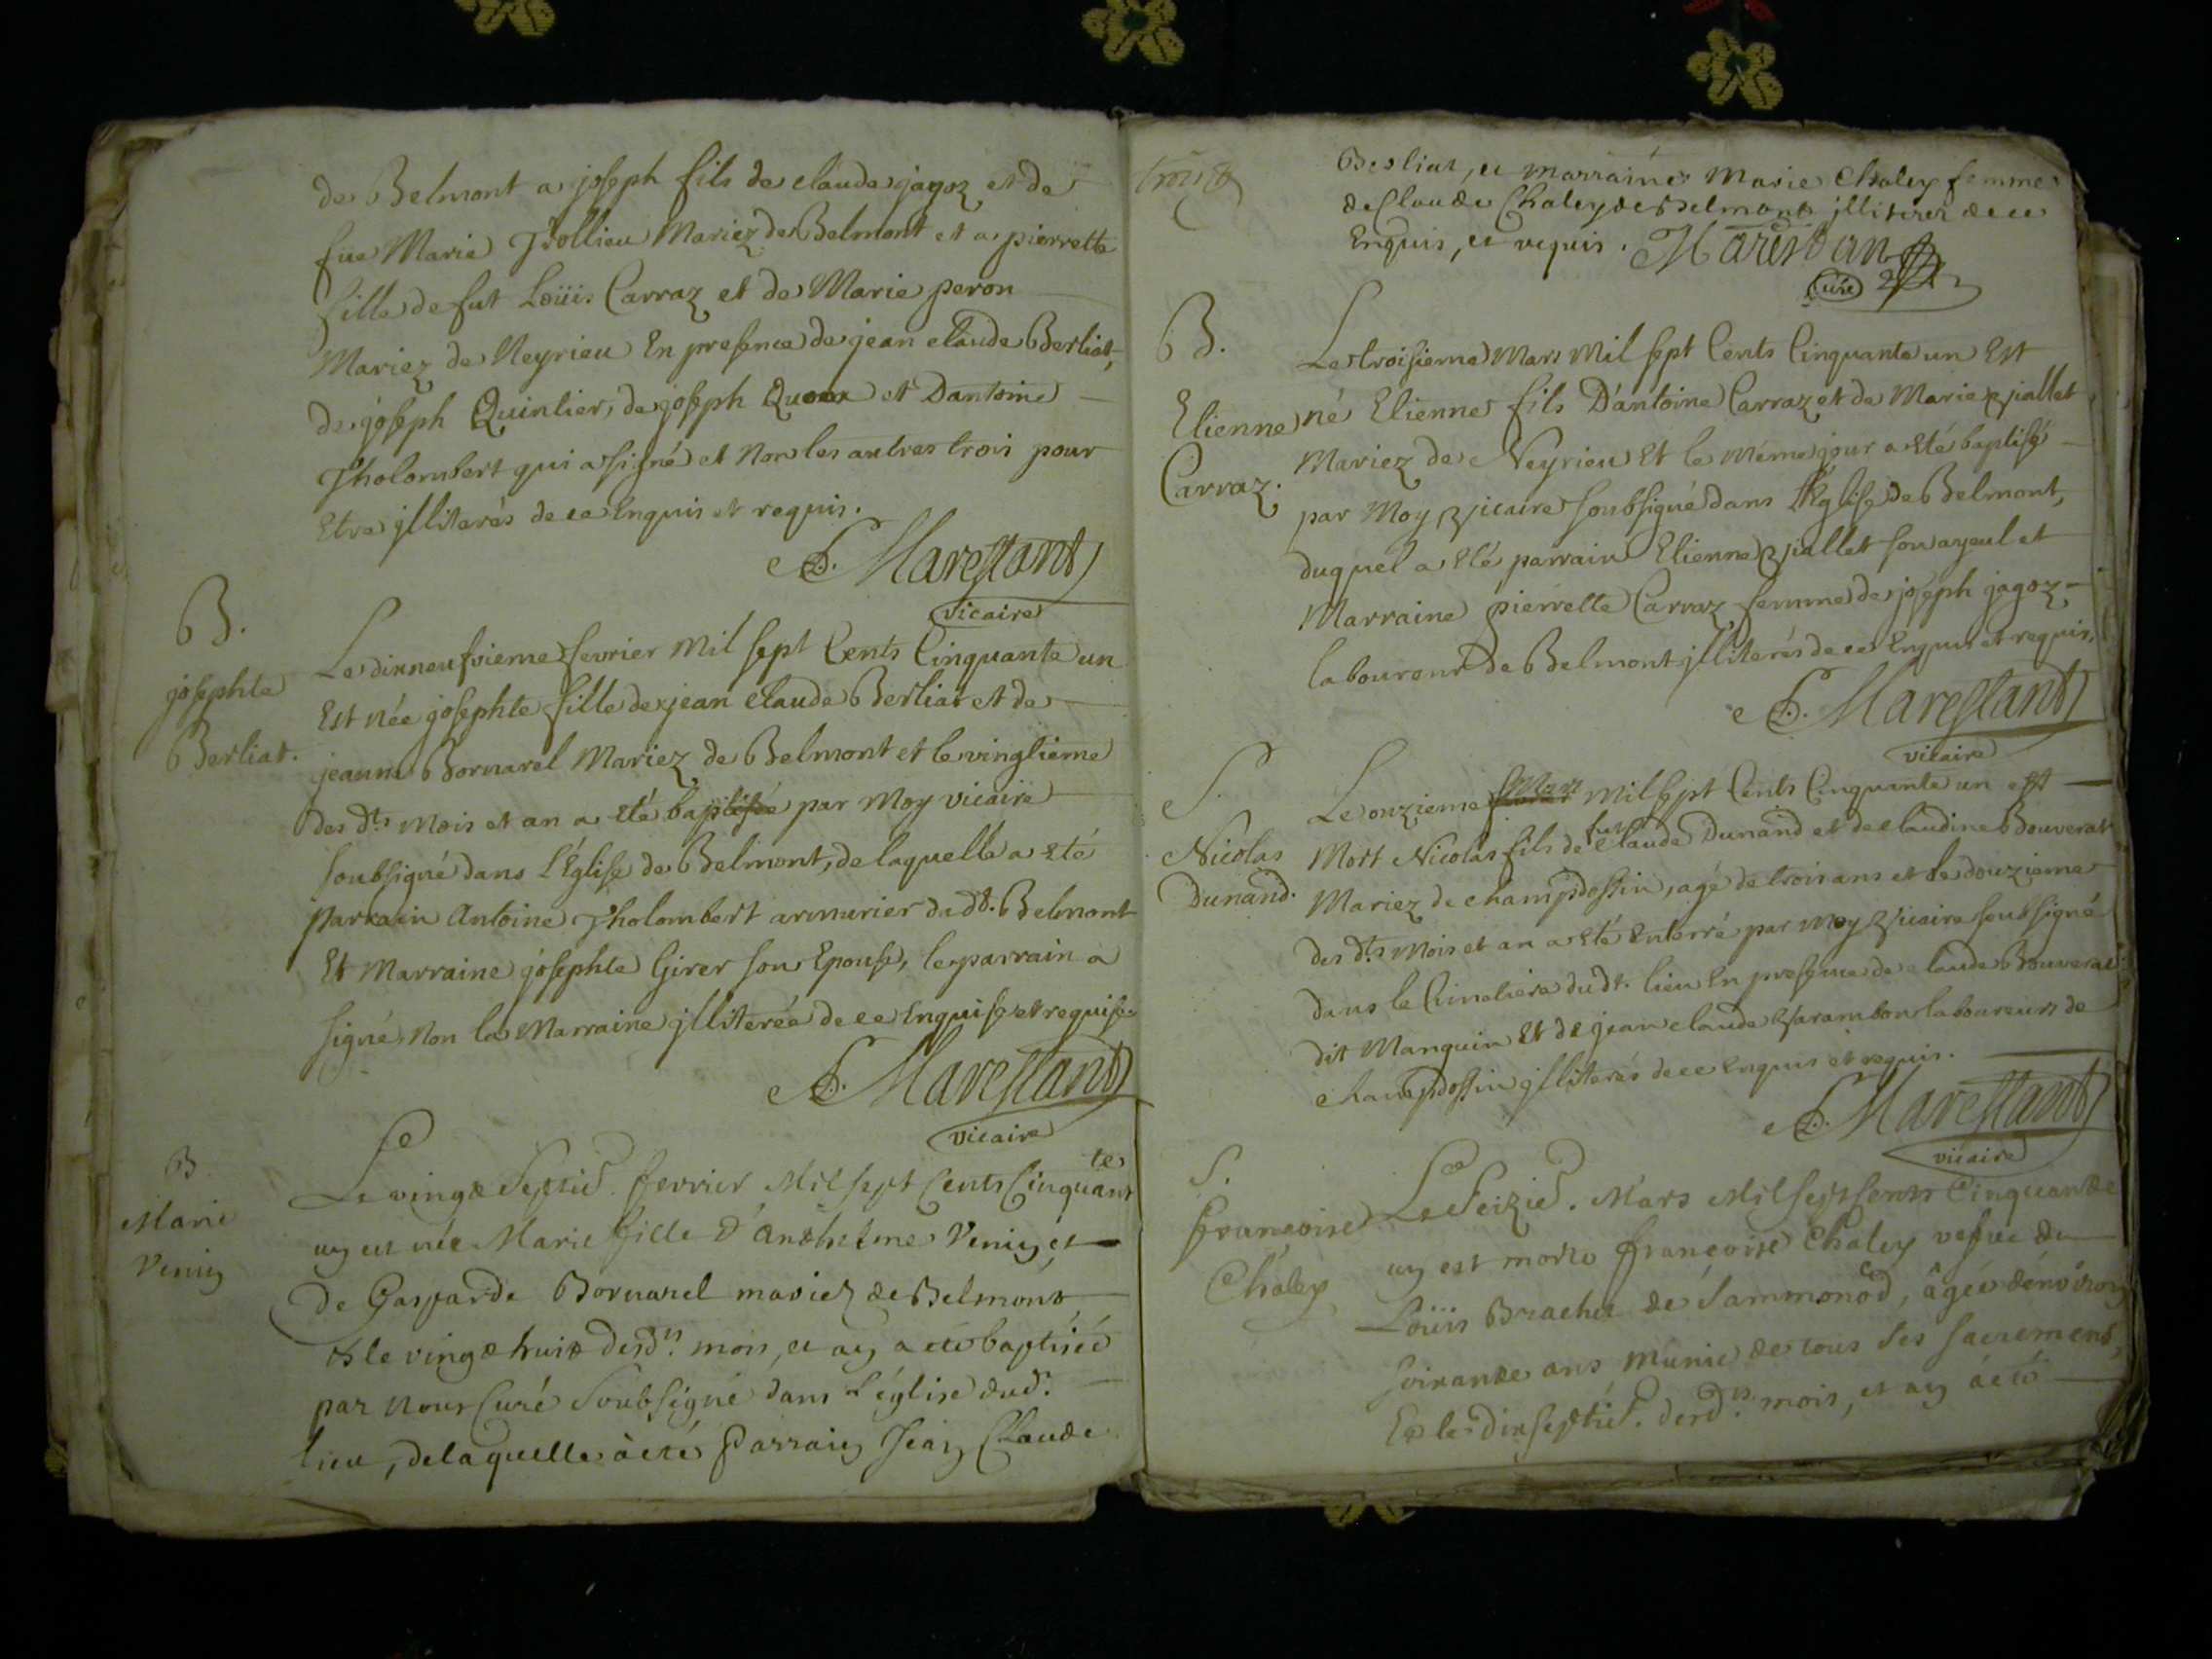 de Belmont a joseph fils de claude jagoz et de
füe Marie Jsollieu Mariez de Belmont et a pierrette
fille de fut Loüis Carraz et de Marie peron
Mariez de Neyrieu En presence de jean claude Berliat,
de joseph Quinlier, de joseph et Dantoine
Tholombert qui a signé et Non les autres trois pour
Etre jlliterés de ce Enquis et requis.
Marestant
vicaire
B.
josephte
Berliat.
Le dixneufvieme fevrier Mil sept Cents Cinquante un
Est née josephte fille de jean claude Berliat et de
jeanne Bornarel Mariez de Belmont et le vingtieme
des dts mois et an a eté baptisée par Moy vicaire
soubsigné dans l'Église de Belmont, de laquelle a eté
parrain Antoine Tholombert armurier dudt. Belmont
Et Marraine josephte Girer son Epouse, le parrain a
signé, Non la Marraine jlliterée de ce Enquise et requise
Marestant
vicaire
B
Marie
Veniy
Le vingt Septie. fevrier Mil sept Cents Cinquante
un est née Marie fille d'Anthelme Veniy, et
De Gasparde Bornarel mariez de Belmont,
et le vingt huit desdts mois, et an a eté baptisée
par nous Curé Soubsigné dans l'église dudt.
lieu, de laquelle à eté Parrain Jean Claude
trois
Berliat, et marraine Marie Chaley femme
de Claude Chaley de Belmont jlliterez de ce
Enquis, et requis. Marestan
Curé
B.
Etienne
Carraz.
Le troisieme Mars Mil sept Cents Cinquante un Est
né Etienne fils D'antoine Carraz et de Marie Viallet
Mariez de Neyrieu Et le Méme jour a eté baptisé
par Moy Vicaire soubsigné dans l'Eglise de Belmont,
duquel a eté parrain Etienne Viallet son ayeul et
Marraine pierrette Carraz femme de joseph jagoz
laboureur de Belmont jlliterés de ce Enquis et requis.
Marestant
vicaire
S.
Nicolas
Dunand.
Le onzieme Mars Mil Sept Cents Cinquante un est
Mort Nicolas fils de fut claude Dunand et de claudine Bouverat
Mariez de champdossin, agé de trois ans et le douzieme
des dts Mois et an a eté Enterré par Moy Vicaire soubsigné
dans le Cimetiere dudt. lieu En presence de claude Bouverat
dit Manguin Et de jean claude Varambon laboureurs de
champdossin jlliterés de ce Enquis et requis.
Marestant
vicaire
S.
françoise
Chaley
Le Seizie. Mars Mil sept Cents Cinquante
un est morte françoise Chaley vefue de
Loüis Brachet de Sammonod, âgée dénviron
soixante ans, munie de tous ses sacrements,
Et le dix septie. desdts mois, et an a eté